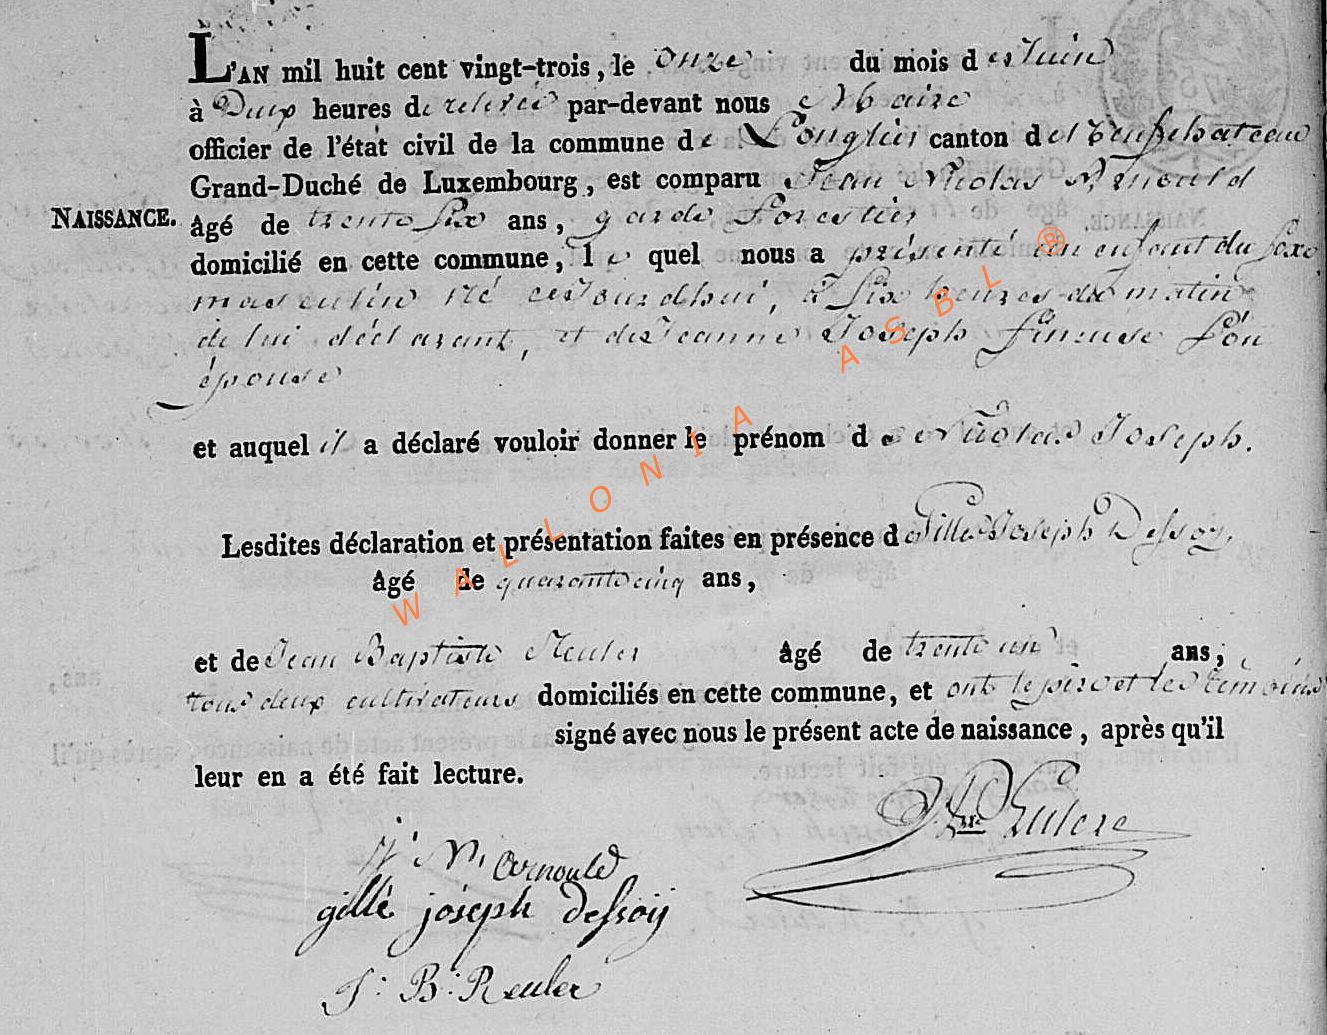 L'AN mil huit cent vingt-trois, le onze du mois de Juin
à Deux heures de relevée par-devant nous Maire
officier de l'état civil de la commune de Longlier canton de Neufchateau
Grand-Duché de Luxembourg, est comparu Jean Nicolas Arnould
NAISSANCE. âgé de trente six ans, garde Forestier
domicilié en cette commune, le quel nous a présenté un enfant du sexe
masculin né cejourdhui, à six heures du matin
de lui déclarant, et de Jeanne Joseph son
épouse
et auquel il a déclaré vouloir donner le prénom de Nicolas Joseph.
Lesdites déclaration et présentation faites en présence de Gille Joseph Dessoy,
âgé de quarante cinq ans,
et de Jean Baptiste Reuler âgé de trente un ans,
tous deux cultivateurs domiciliés en cette commune, et ont le père et les témoins
signé avec nous le présent acte de naissance, après qu'il
leur en a été fait lecture.
J. N. Arnould
gille joseph dessoy
J: B: Reuler
WALLONIA ASBL ®